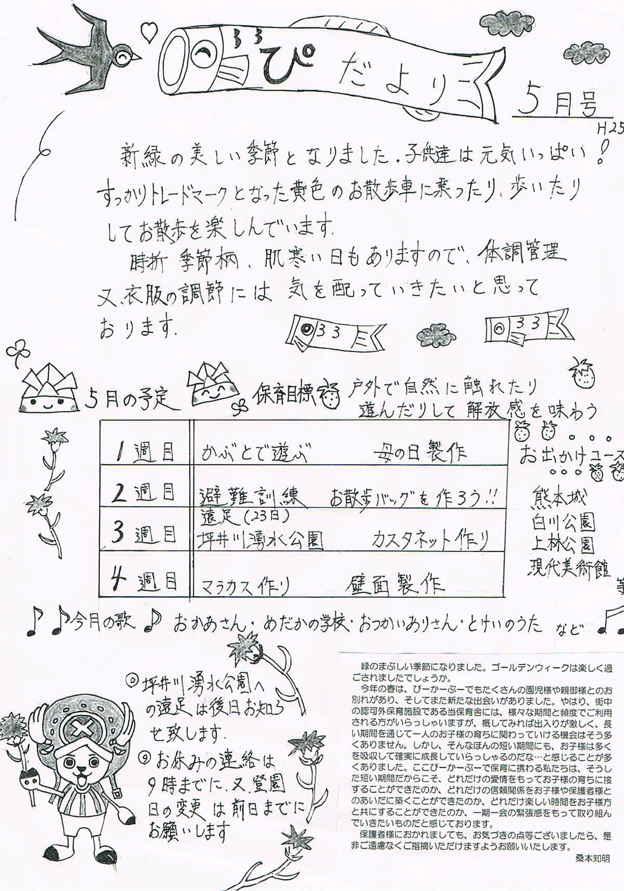 ぴだより
5月号
H25
新緑の美しい季節となりました。子供達は元気いっぱい!
すっかりトレードマークとなった黄色のお散歩車に乗ったり、歩いたり
してお散歩を楽しんでいます。
時折 季節柄、肌寒い日もありますので、体調管理
又、衣服の調節には 気を配っていきたいと思って
おります。
5月の予定
保育目標
戸外で自然に触れたり
遊んだりして 解放感を味わう
1週目 かぶとで遊ぶ 母の日製作
2週目 避難訓練 お散歩バッグを作ろう!!
3週目 遠足(23日)
坪井川湧水公園 カスタネット作り
4週目 マラカス作り 壁面製作
お出かけコース
熊本城
白川公園
上林公園
現代美術館
等
今月の歌 おかあさん・めだかの学校・おつかいありさん・とけいのうた など
◎坪井川湧水公園へ
の遠足は後日お知ら
せ致します。
◎お休みの連絡は
9時までに、又、登園
日の変更は前日までに
お願いします
緑のまぶしい季節になりました。ゴールデンウィークは楽しく過
ごされましたでしょうか。
今年の春は、ぴーかーぶーでもたくさんの園児様や親御様とのお
別れがあり、そしてまた新たな出会いがありました。やはり、街中
の認可外保育施設である当保育舎には、様々な期間と頻度でご利用
される方がいらっしゃいますが、概してみれば出入りが激しく、長
い期間を通じて一人のお子様の育ちに関わっていける機会はそう多
くありません。しかし、そんなほんの短い期間にも、お子様は多く
を吸収して確実に成長していらっしゃるのだな…と感じることが多
くありました。ここぴーかーぶーで保育に携わる私たちは、そうし
た短い期間だからこそ、どれだけの愛情をもってお子様の育ちに接
することができたのか、どれだけの信頼関係をお子様や保護者様と
のあいだに築くことができたのか、どれだけ楽しい時間をお子様方
と共にすることができたのか、一期一会の緊張感をもって取り組ん
でいきたいものだと感じております。
保護者様におかれましても、お気づきの点等ございましたら、是
非ご遠慮なくご指摘いただけますようお願いいたします。
桑本知明